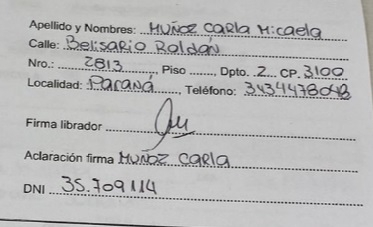 Apellido y Nombres: MUÑOZ CARLA Micaela
Calle: Belisario Roldán
Nro.: 2813, Piso ......., Dpto. 2... CP. 3100
Localidad: Paraná, Teléfono: 3434478048
Firma librador
Aclaración firma MUÑOZ CARLA
DNI 35.709114